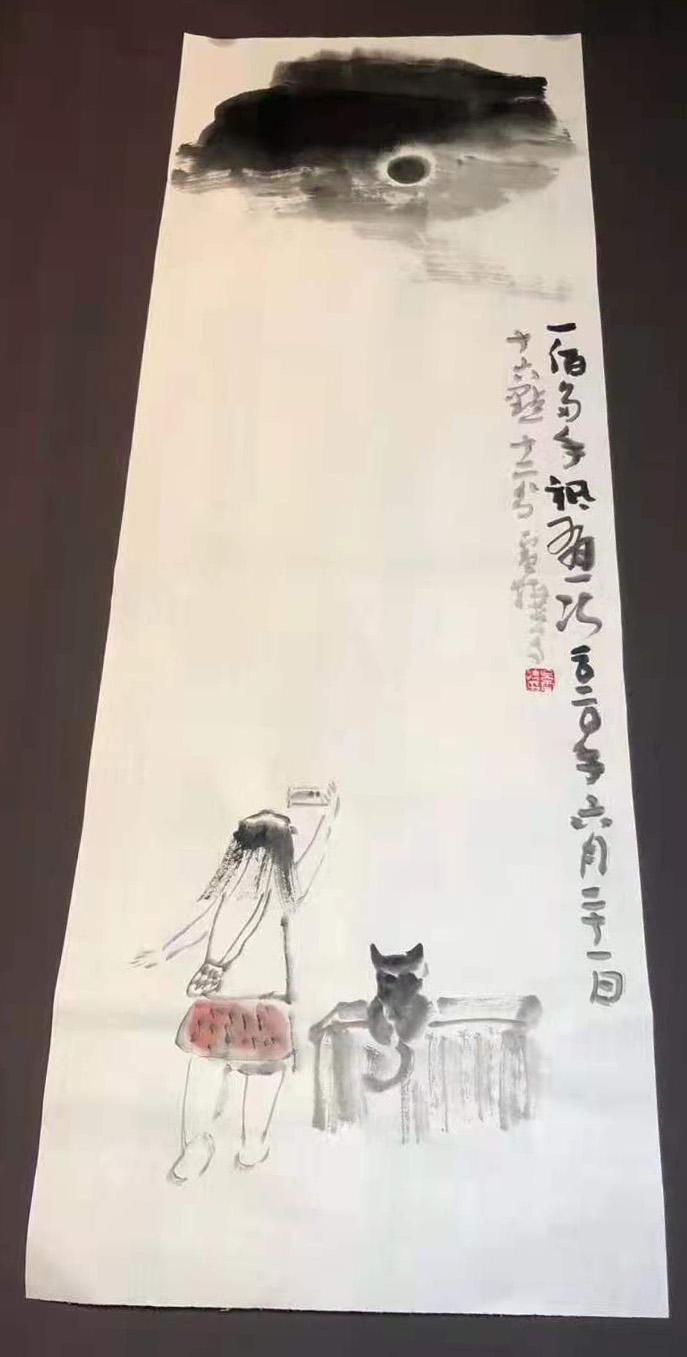 一佰多年祇有一次 二〇二〇年六月二十一日
十六點十二分